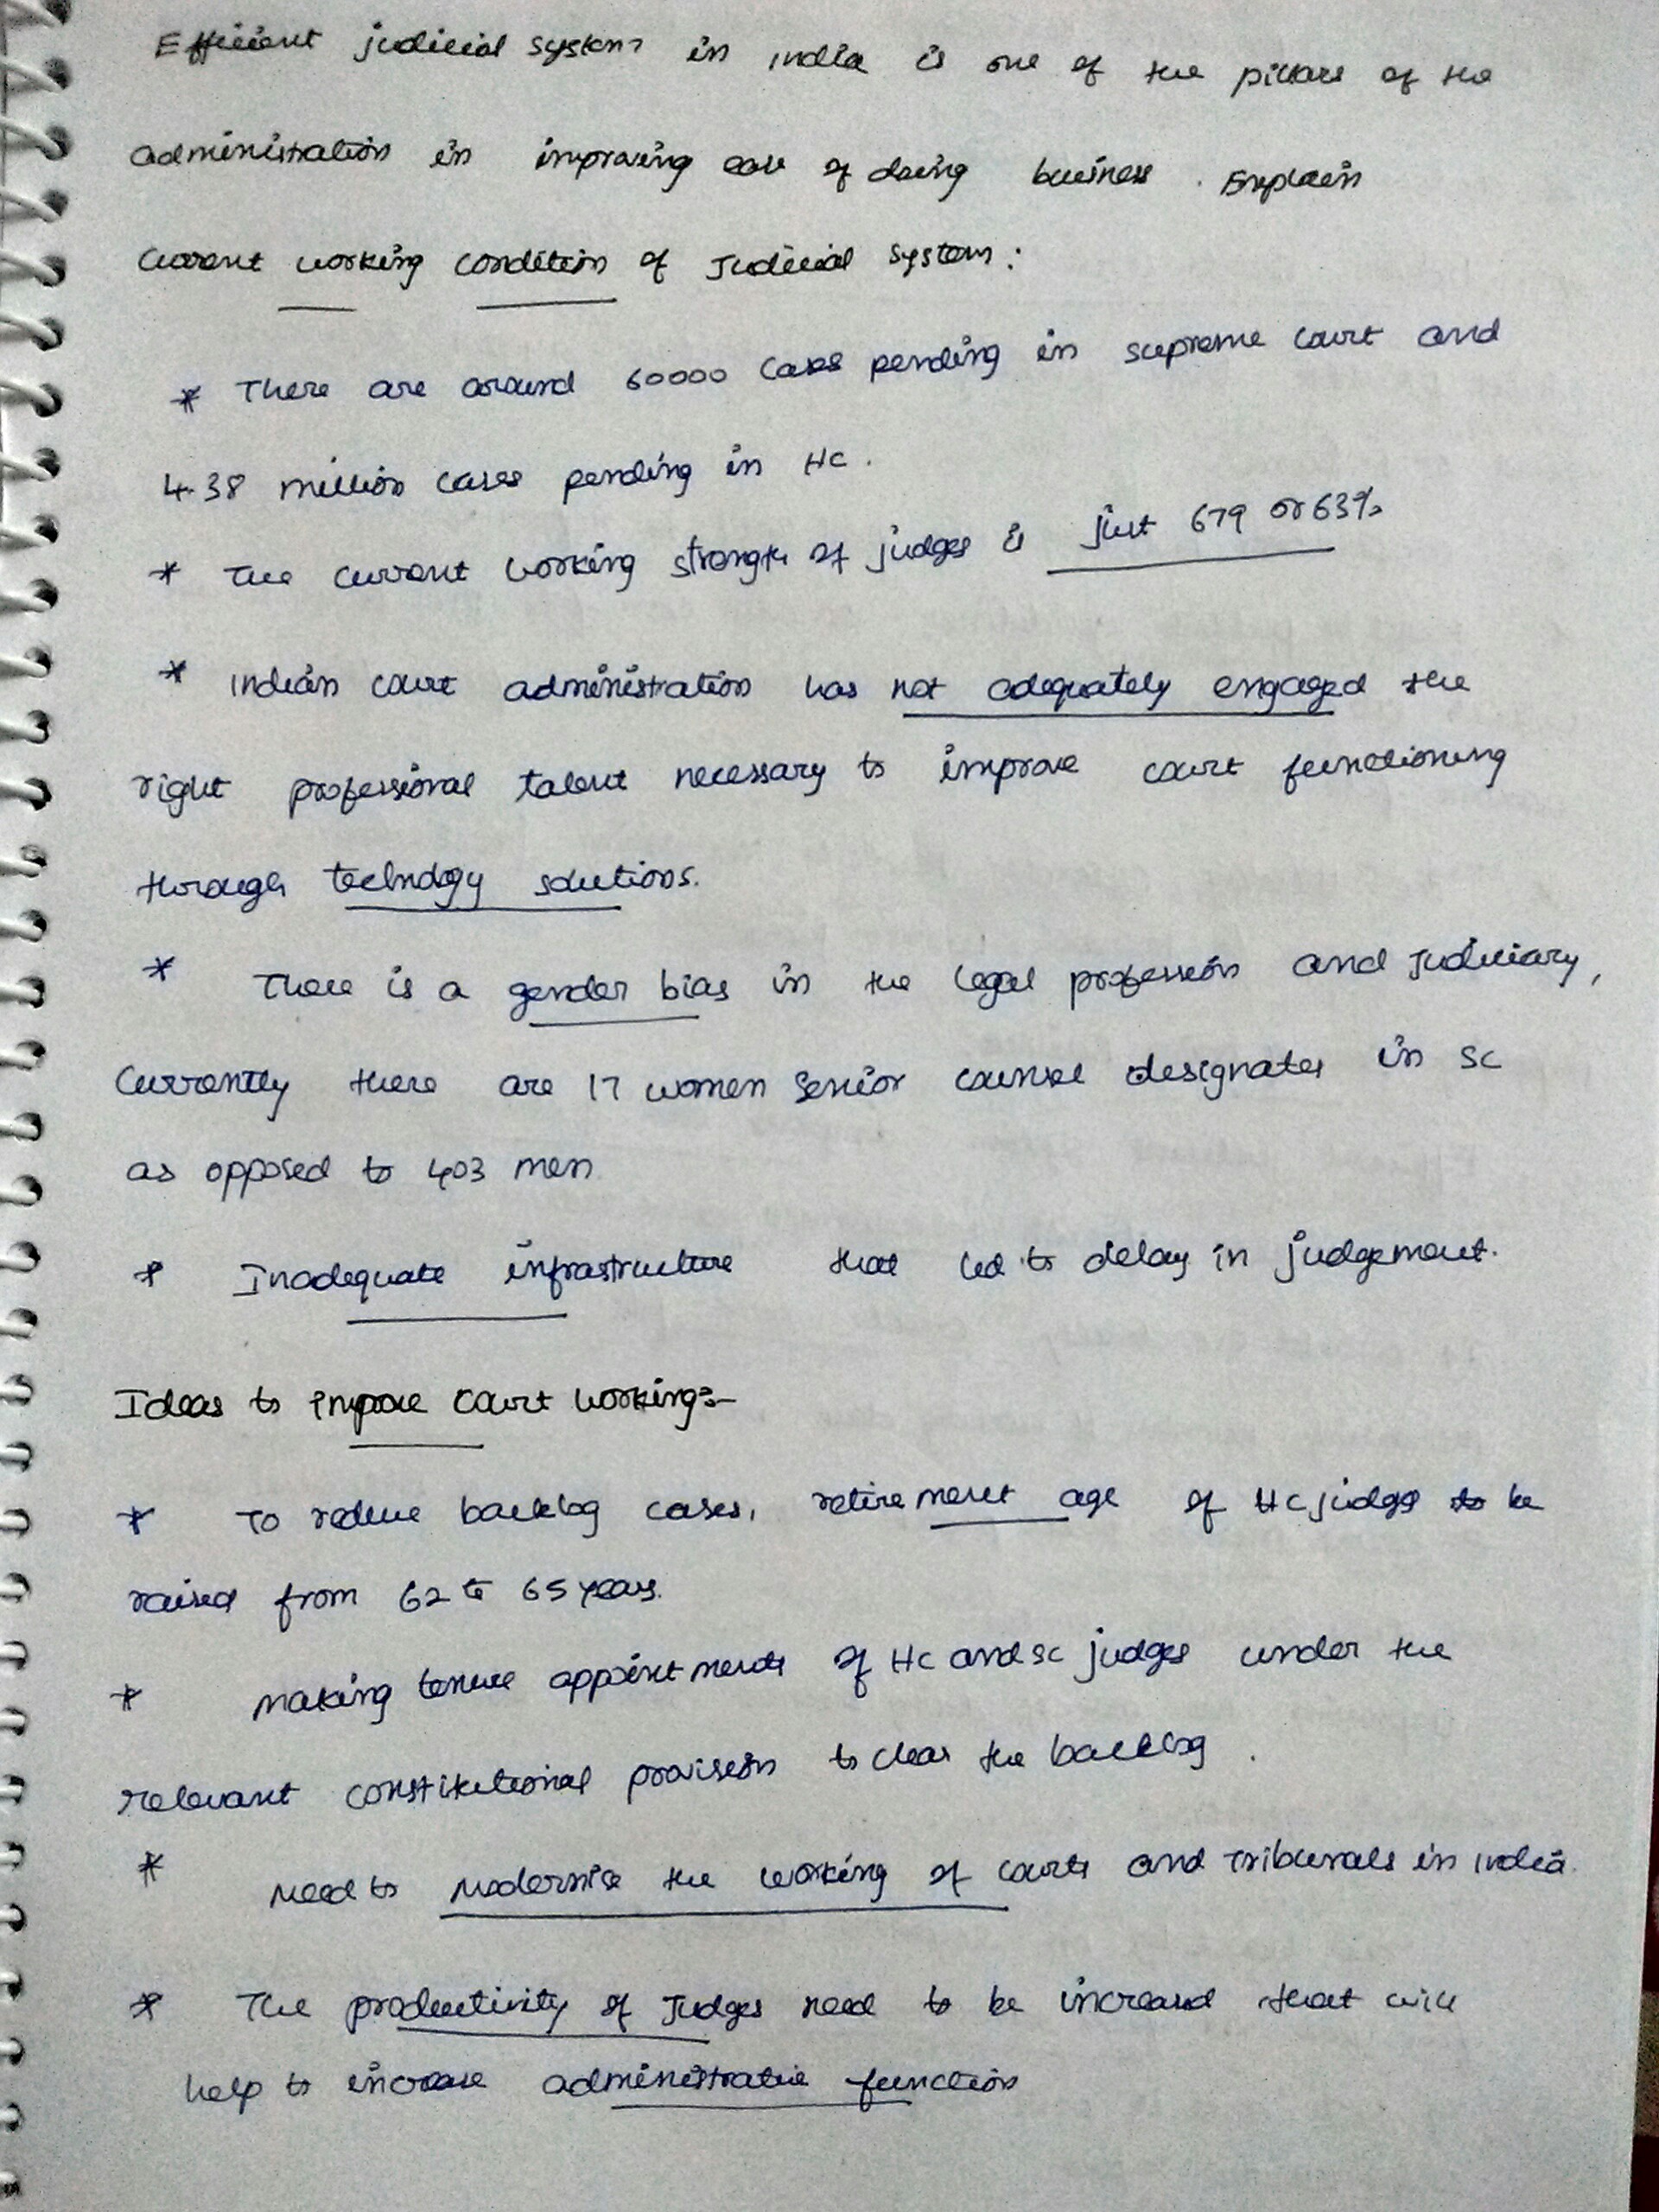 Efficient judicial system in India is one of the pillars of the
administration in improving ease of doing business. Explain
Current working condition of Judicial system:
* There are around 60000 cases pending in supreme court and
4.38 million cases pending in HC.
* The current working strength of judges is just 679 or 63%
* Indian court administration has not adequately engaged the
right professional talent necessary to improve court functioning
through technology solutions.
* There is a gender bias in the legal profession and Judiciary,
Currently there are 17 women Senior counsel designates in SC
as opposed to 403 men
* Inadequate infrastructure that led to delay in judgement.
Ideas to improve court working:-
* To reduce backlog cases, retirement age of HC judges to be
raised from 62 to 65 years.
* Making tenure appointments of HC and SC judges under the
relevant constitutional provision to clear the backlog.
* Need to modernise the working of courts and Tribunals in India.
* The productivity of Judges need to be increased that will
help to increase administrative function